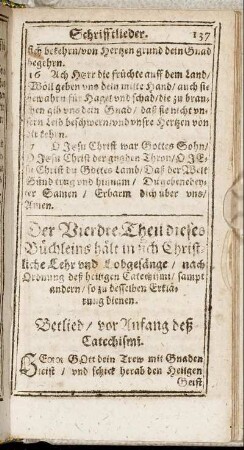 Schrifftlieder. 137
sich bekehrn/von Hertzen grund dein Gnad
begehrn.
16 Ach Herr die früchte auff dem Land/
Woll geben uns dein milte Hand/ auch sie
bewahrn für Hagel und schad/die zu brau-
chen gib uns dein Gnad/ daß sie nicht un-
sern Leib beschwern/und unsre Hertzen von
dir kehrn.
O Jesu Christ war Gottes Sohn/
O Jesu Christ der gnaden Thron/ O JE-
su Christ du Gottes Land/ Daß der Welt
Sünd und / Du gebenedey-
ter Samen / Erbarm dich über uns/
Amen.
Der Vierdte Theil dieses
Büchleins hält in sich Christ-
liche Lehr und Lobgesänge/ nach
Ordnung deß heiligen Catechismi/ sampt
andern/ so zu desselben Erklä-
rung dienen.
Betlied/ vor Anfang deß
Catechismi.
HERR GOtt dein Trew mit Gnaden
leist / und schick herab den Heilgen
Geist